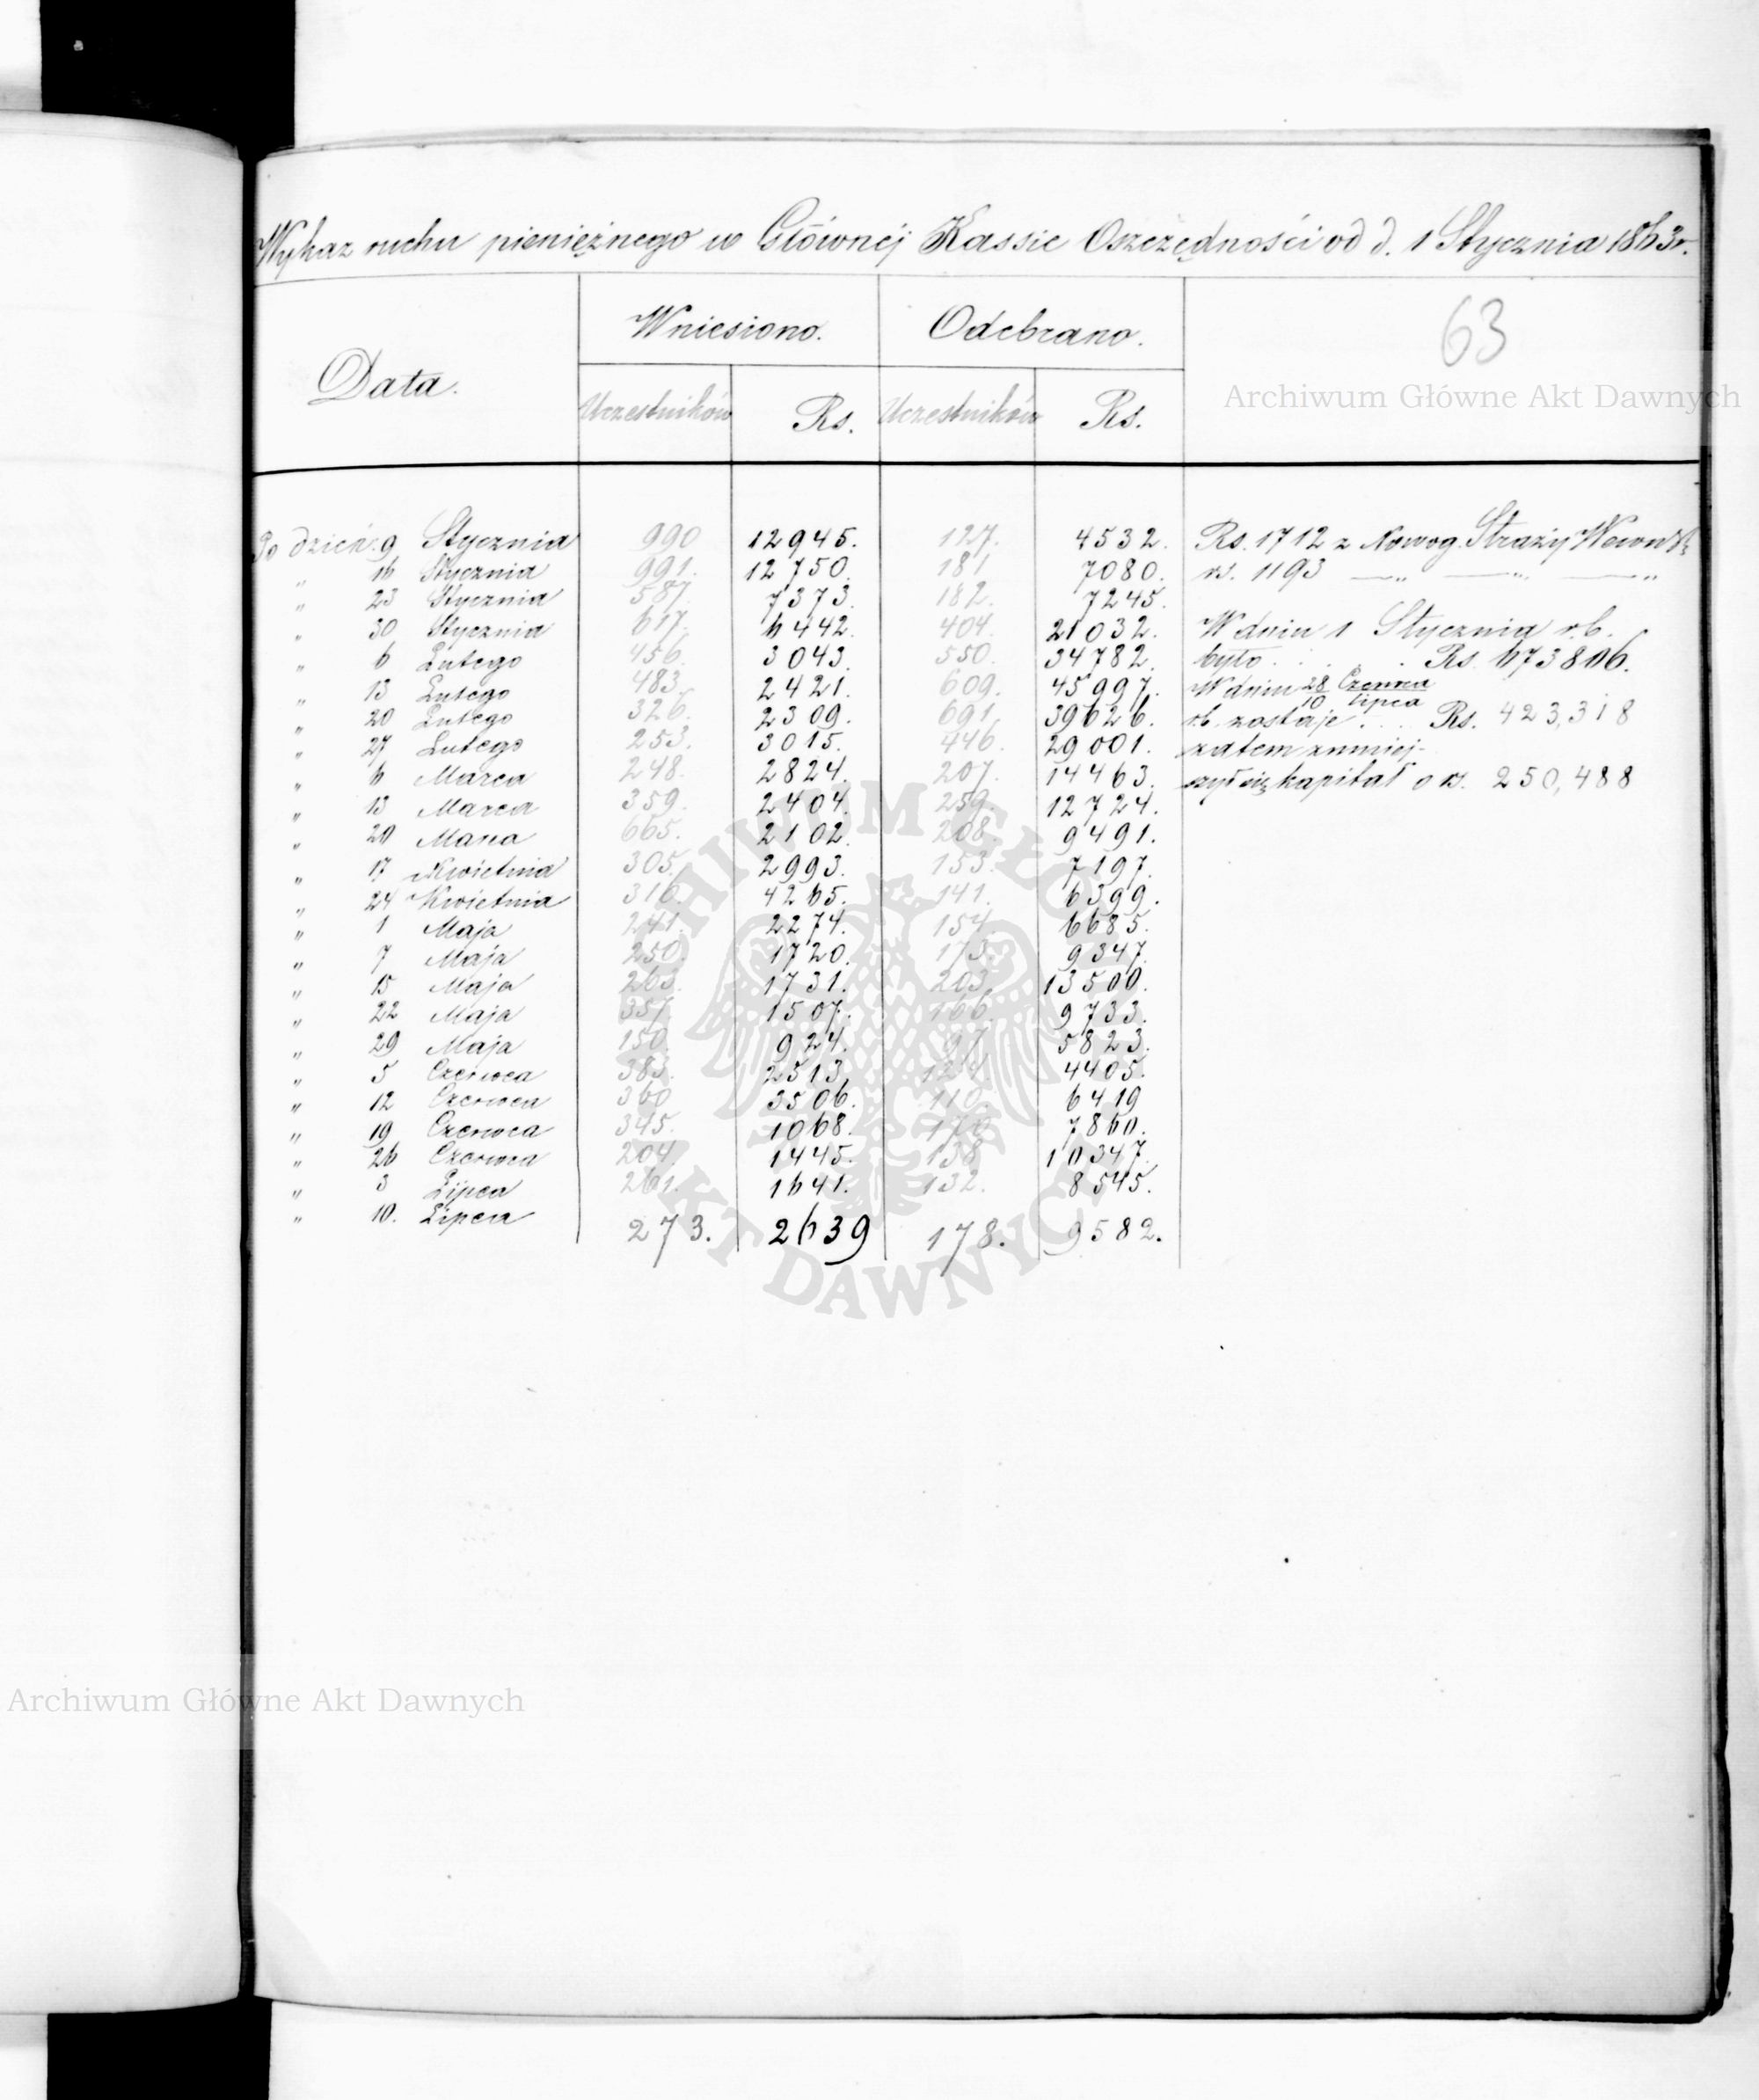 Wykaz ruchu pieniężnego w Głównej Kassie Oszczędności od d. 1 Stycznia 1863 r.
63
Data. Wniesiono. Odebrano.
Uczestników Rs. Uczestników Rs.
Archiwum Główne Akt Dawnych
Po dzień 9 Stycznia 990 12945. 127. 4532. Rs. 1712 z Nowog. Straży
" 16 Stycznia 991. 12750. 181 7080. rs. 1193 — " — " — "
" 23 Stycznia 587. 7373. 182. 7245.
" 30 Stycznia 617. 6442. 404. 21032. W dniu 1 Stycznia r.b.
" 6 Lutego 456. 3043. 550. 34782. było . . . Rs. 673806.
" 13 Lutego 483. 2421. 609. 45997. W dniu 28/10 Czerwca/Lipca
" 20 Lutego 326. 2309. 691. 39626. rb. zostaje . . . Rs. 423,318
" 27 Lutego 253. 3015. 446. 29001. zatem zmniej-
" 6 Marca 248. 2824. 207. 14463. szył się kapitał o rs. 250,488
" 13 Marca 359. 2404. 259. 12724.
" 20 Marca 665. 2102. 208. 9491.
" 17 Kwietnia 305. 2993. 153. 7197.
" 24 Kwietnia 316. 4265. 141. 6399.
" 1 Maja 241. 2274. 154. 6685.
" 7 Maja 250. 1720. 173. 9347.
" 15 Maja 263. 1731. 203. 13500.
" 22 Maja 357. 1507. 166. 9733.
" 29 Maja 150. 924. 97. 5823.
" 5 Czerwca 383. 2513. 4405.
" 12 Czerwca 360 3506. 110. 6419
" 19 Czerwca 345. 1068. 7860.
" 26 Czerwca 204. 1445. 138. 10347.
" 3 Lipca 261. 1641. 132. 8545.
" 10. Lipca 273. 2639 178. 9582.
ARCHIWUM GŁÓWNE AKT DAWNYCH
Archiwum Główne Akt Dawnych